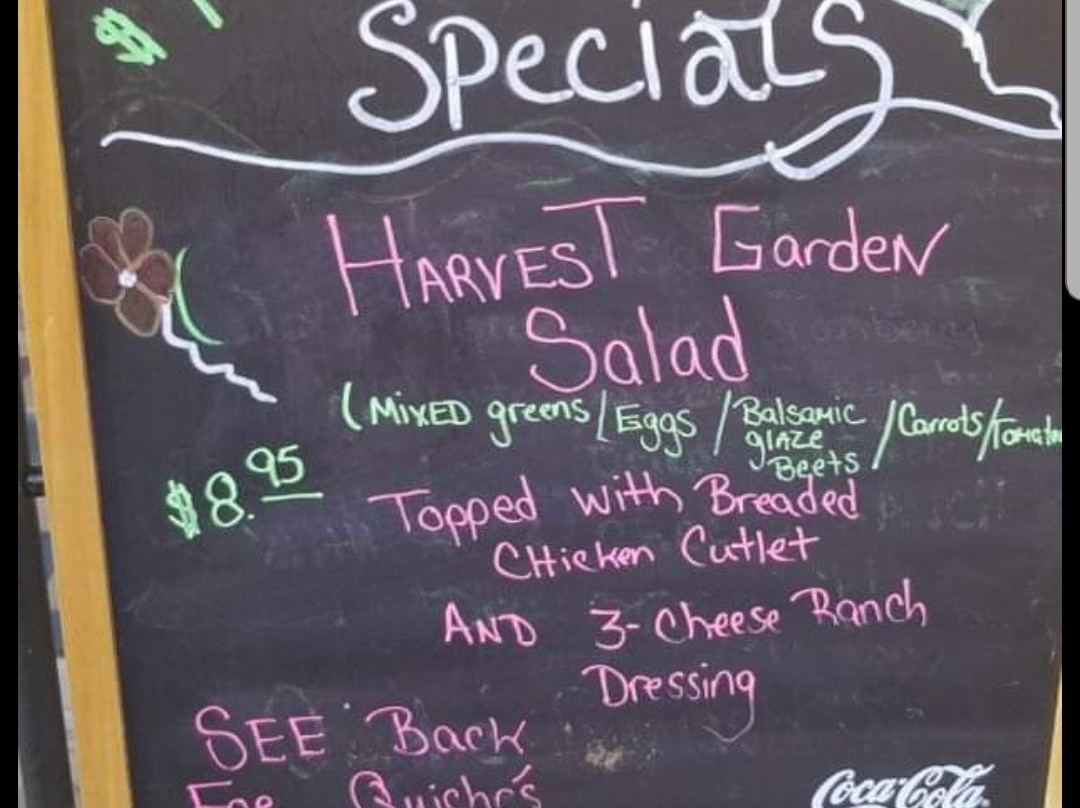 $
Specials
HARVEST Garden
Salad
(MIXED greens / Eggs / Balsamic glaze Beets / Carrots / Tomato
$8.95
Topped with Breaded
CHicken Cutlet
AND 3-Cheese Ranch
Dressing
SEE Back
For Quiche's
Coca-Cola